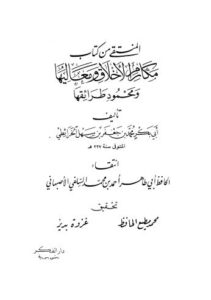 المنتقى من كتاب
مكارم الأخلاق ومعاليها
ومحمود طرائقها
تأليف
أبي بكر محمد بن جعفر بن سهل الخرائطي
المتوفى سنة ٣٢٧ هـ
انتقاء
الحافظ أبي طاهر أحمد بن محمد السلفي الأصبهاني
تحقيق
محمد مطيع الحافظ
غزوة بدير
دار الفكر